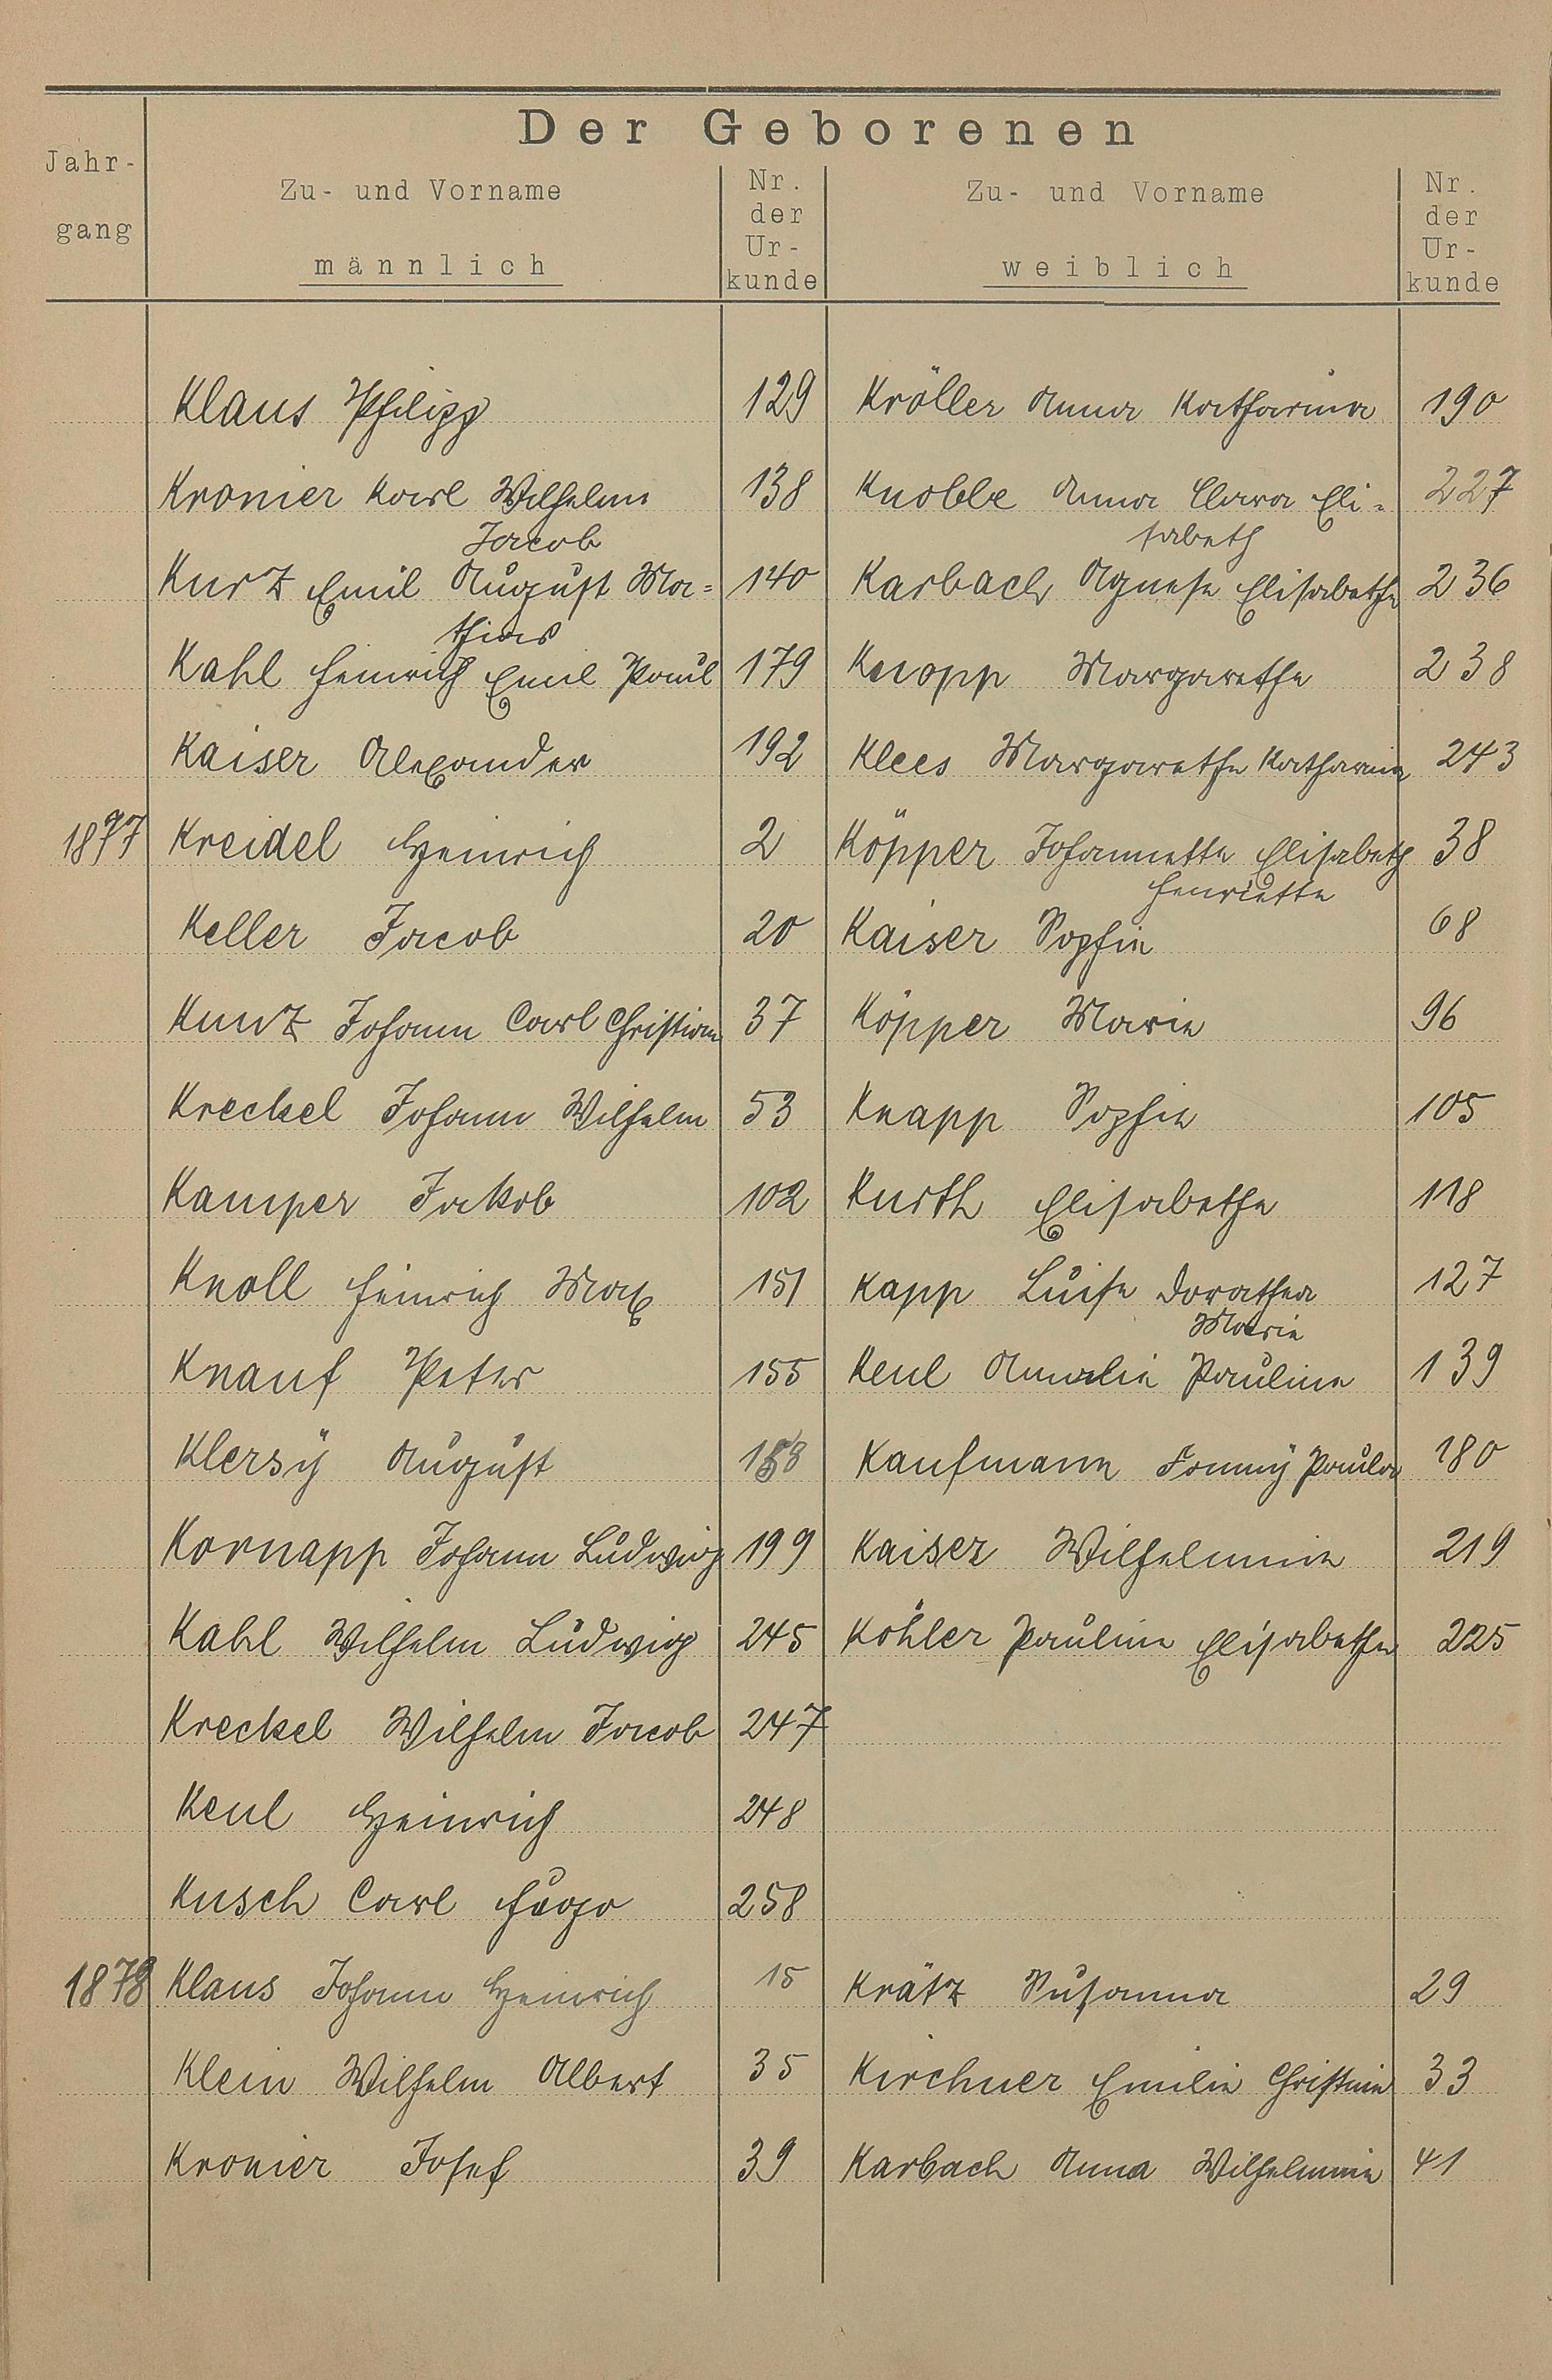 Der Geborenen
Jahr-
gang
Zu- und Vorname
männlich
Nr.
der
Ur-
kunde
Zu- und Vorname
weiblich
Nr.
der
Ur-
kunde
Klaus Philipp 129 Kröller Anna Katharina 190
Kronier Karl Wilhelm 138 Knobbe Anna Clara Eli- 227
Jacob sabeth
Kurz Emil August Ma- 140 Karbach Agnese Elisabethe 236
thias
Kahl Heinrich Emil Paul 179 Knopp Margarethe 238
Kaiser Alexander 192 Klees Margarethe Katharina 243
1877 Kreidel Heinrich 2 Köpper Johannette Elisabeth 38
Henriette
Keller Jacob 20 Kaiser Sophie 68
Kunz Johann Carl Christian 37 Köpper Marie 96
Kreckel Johann Wilhelm 53 Knapp Sophie 105
Kamper Jakob 102 Kurth Elisabethe 118
Knoll Heinrich Max 151 Kapp Luise Dorathea 127
Marie
Knauf Peter 155 Keul Amalie Pauline 139
Klersy August Kaufmann Fanny Paula 180
Kornapp Johann Ludwig 199 Kaiser Wilhelmine 219
Kahl Wilhelm Ludwig 245 Köhler Pauline Elisabethe 225
Kreckel Wilhelm Jacob 247
Keul Heinrich 248
Kusch Carl Hugo 258
1878 Klaus Johann Heinrich 15 Krätz Susanna 29
Klein Wilhelm Albert 35 Kirchner Emilie Christine 33
Kronier Josef 39 Karbach Anna Wilhelmine 41